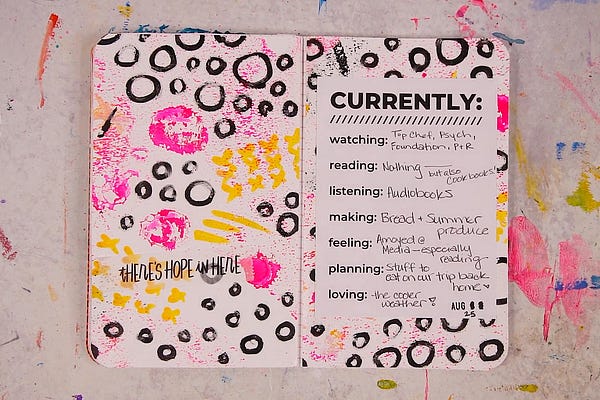 THERE'S HOPE IN HERE
CURRENTLY:
watching: Top Chef, Psych,
Foundation, P+R
reading: Nothing —
but also
cookbooks!
listening: Audiobooks
making: Bread + Summer
produce
feeling: Annoyed @
Media—especially
reading
planning: Stuff to
eat on our trip back
home
loving: the cooler
weather!
AUG
25